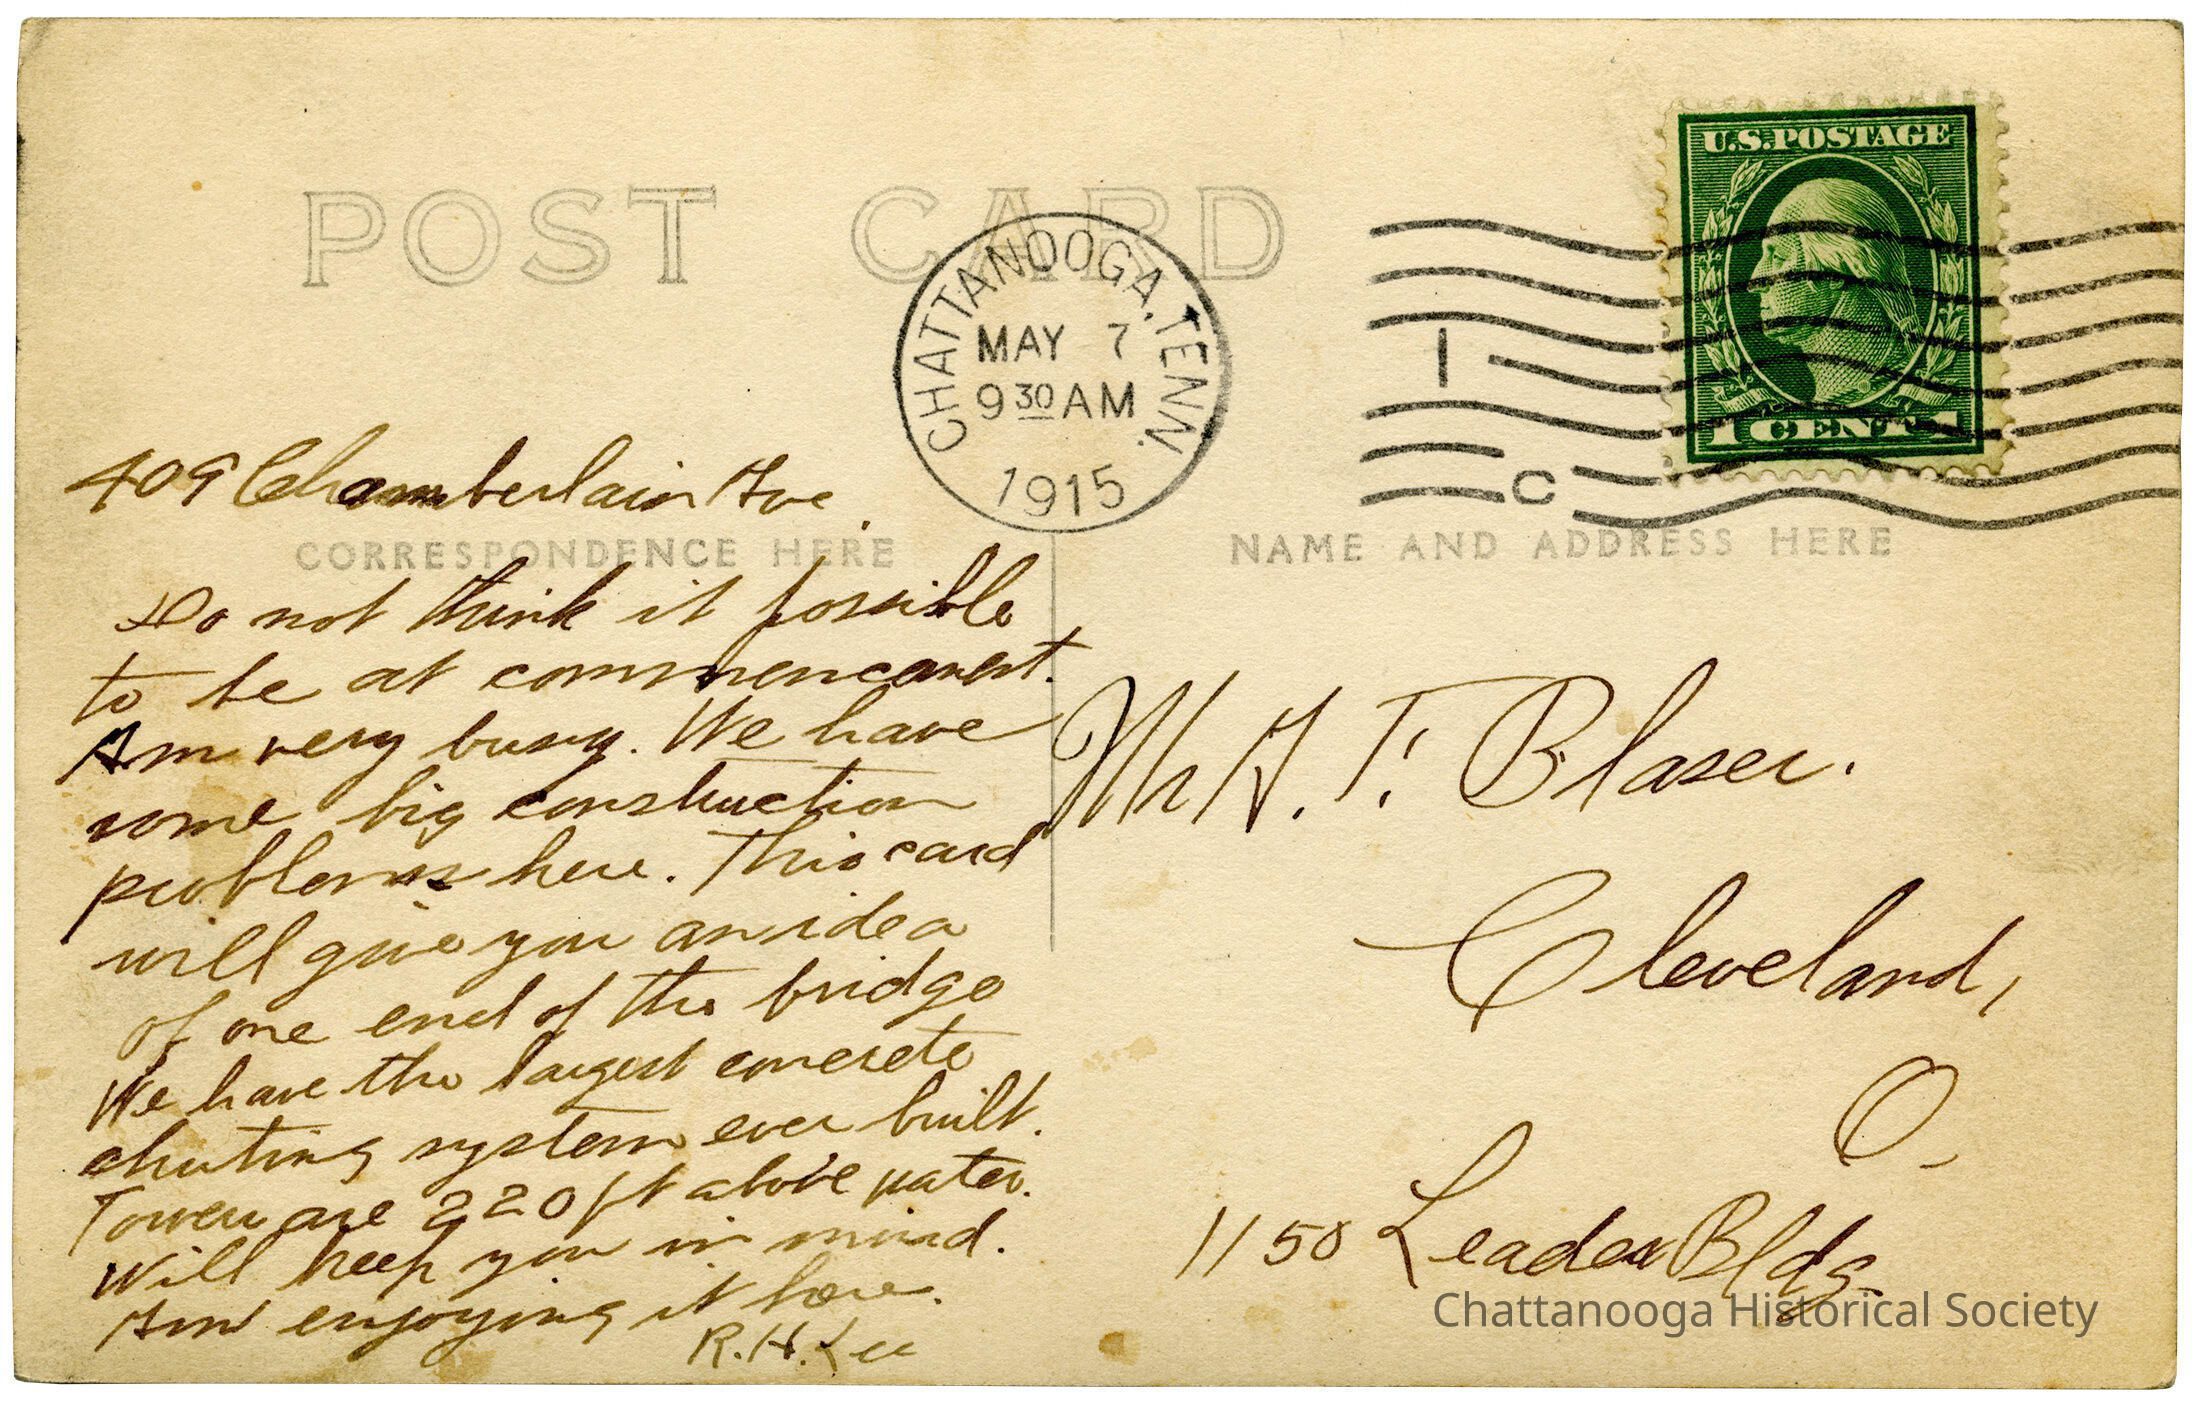 POST CARD
U.S. POSTAGE
1 CENT 1
CHATTANOOGA, TENN.
MAY 7
9 30 AM
1915
1
C
CORRESPONDENCE HERE
NAME AND ADDRESS HERE
409 Chamberlain Ave.
Do not think it possible
to be at commencement.
Am very busy. We have
some big construction
problems here. This card
will give you an idea
of one end of the bridge
We have the largest concrete
chuting system ever built.
Towers are 220 ft above water.
Will keep you in mind.
Am enjoying it here.
R. H. Lee
Mr A. F. Blaser.
Cleveland,
O.
1150 Leader Bldg.
Chattanooga Historical Society